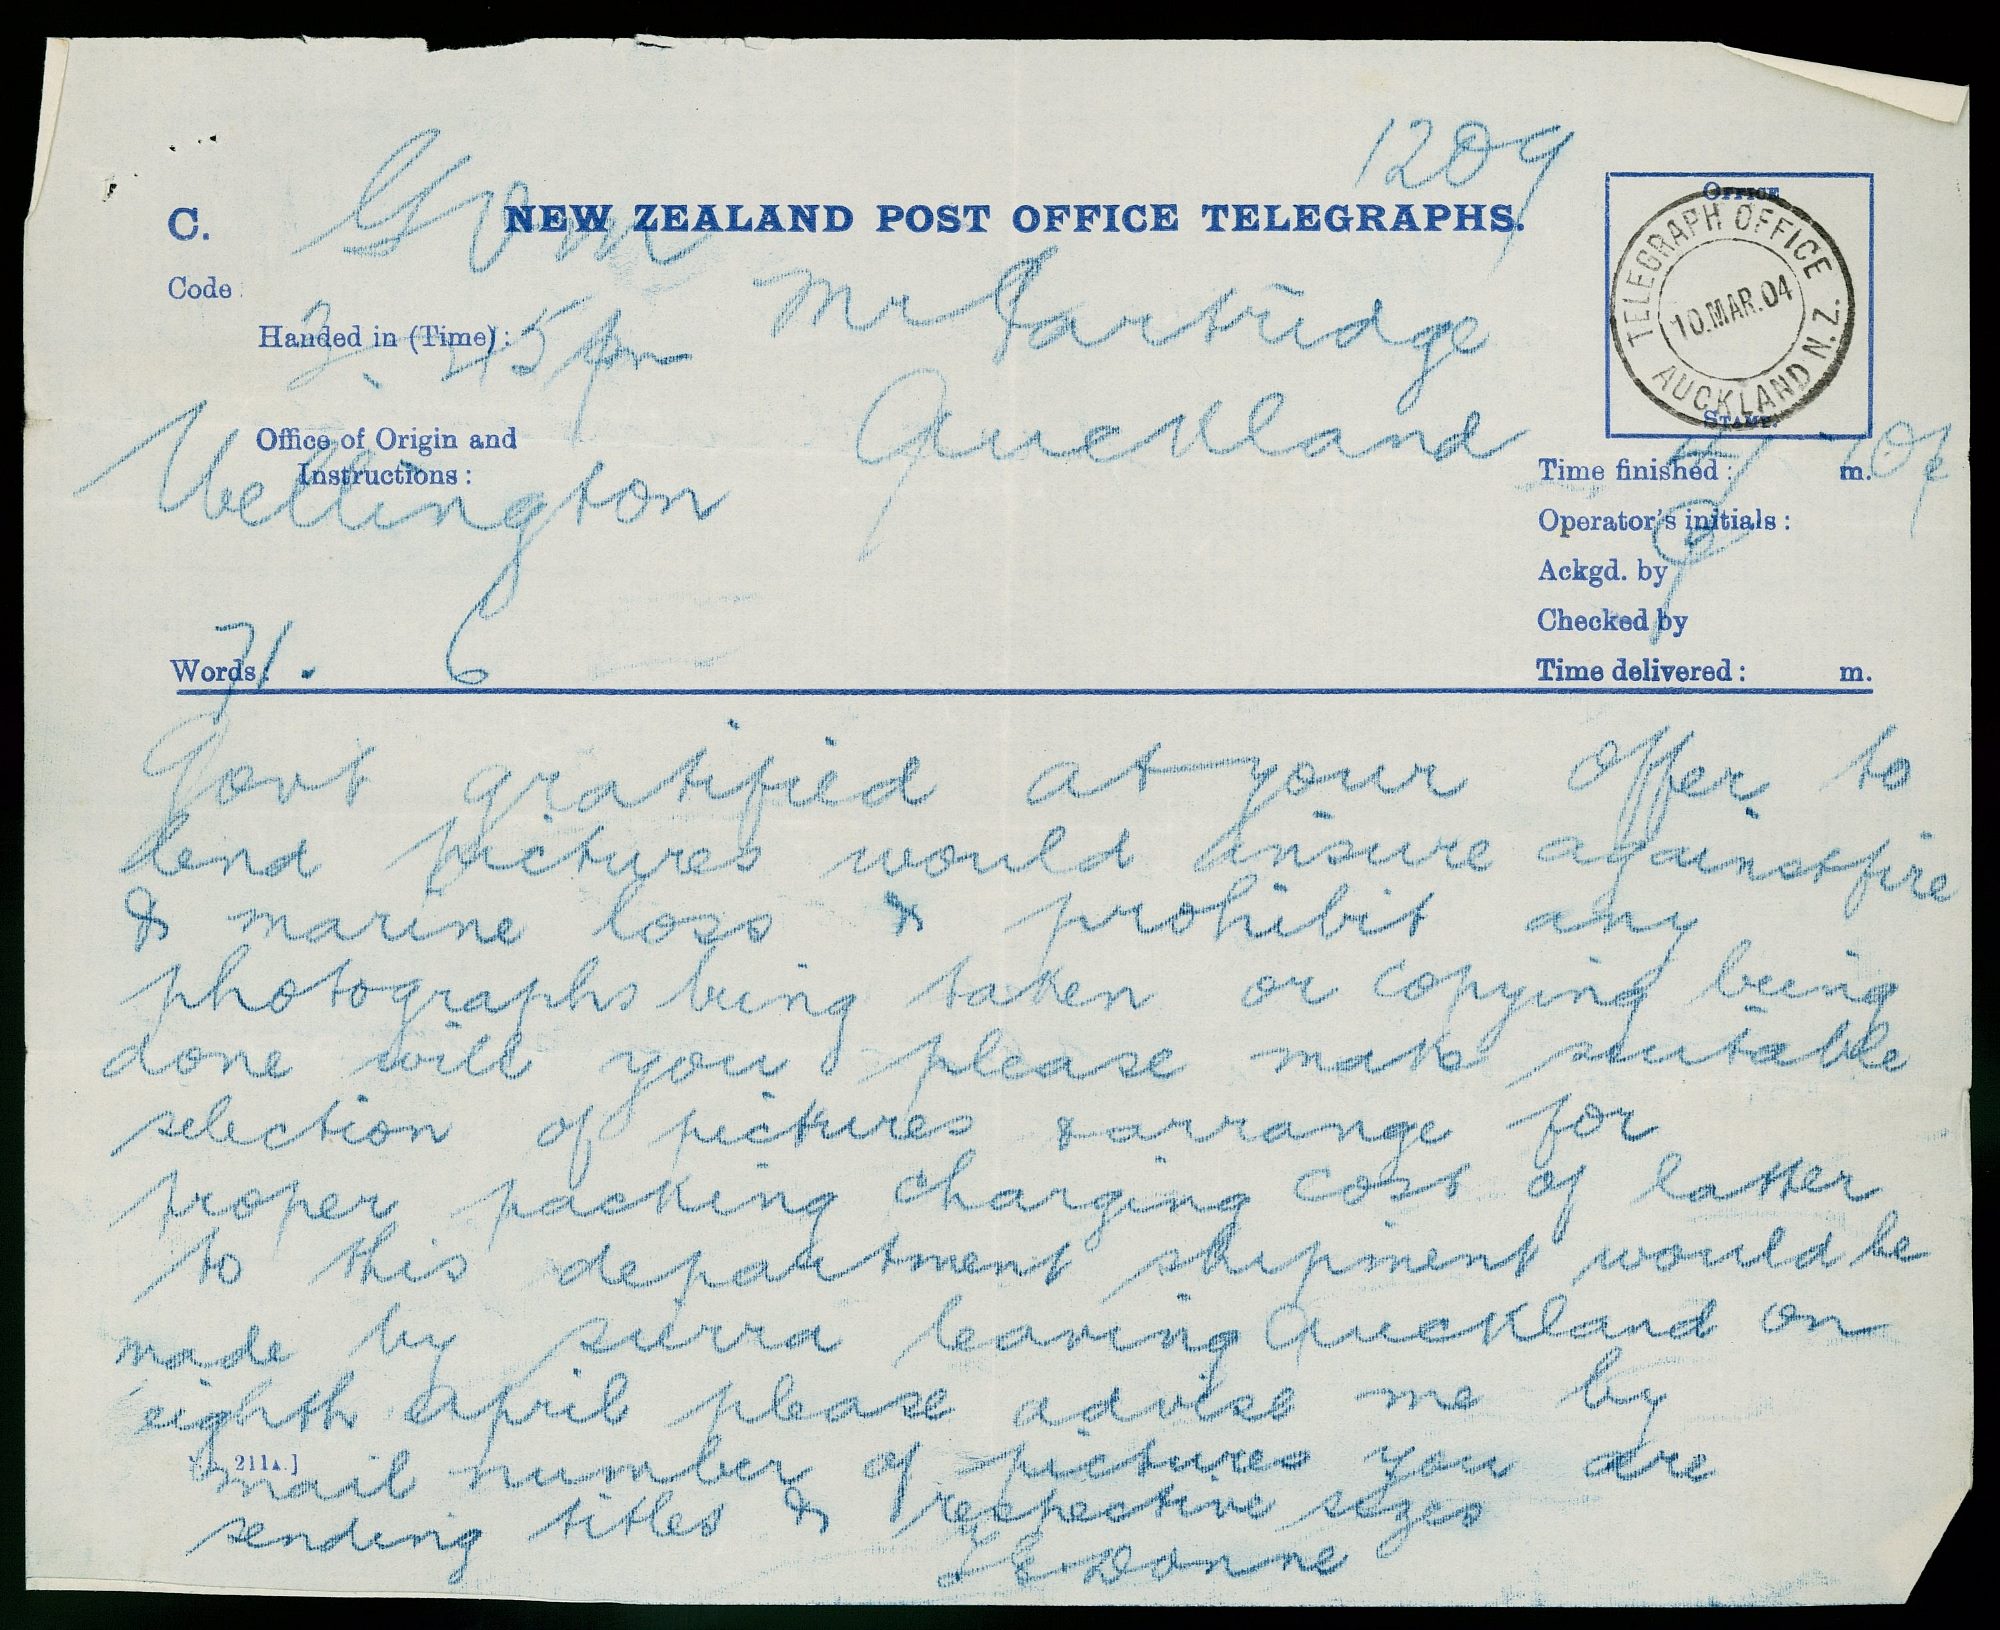 1209
C.
NEW ZEALAND POST OFFICE TELEGRAPHS.
OFFICE
STAMP.
TELEGRAPH OFFICE
10.MAR.04
AUCKLAND N.Z.
Code
Handed in (Time):
2.45 pm
Mr Partridge
Auckland
Office of Origin and
Instructions:
Wellington
Time finished: m.
Operator's initials:
Ackgd. by
Checked by
Words: 71. 6
Time delivered: m.
Govt gratified at your offer to
lend pictures would insure against fire
& marine loss & prohibit any
photographs being taken or copying being
done will you please make suitable
selection of pictures & arrange for
proper packing charging cost of latter
to this department shipment would be
made by sierra leaving Auckland on
eighth april please advise me by
211A.]
mail number of pictures you are
sending titles & respective sizes
T E Donne